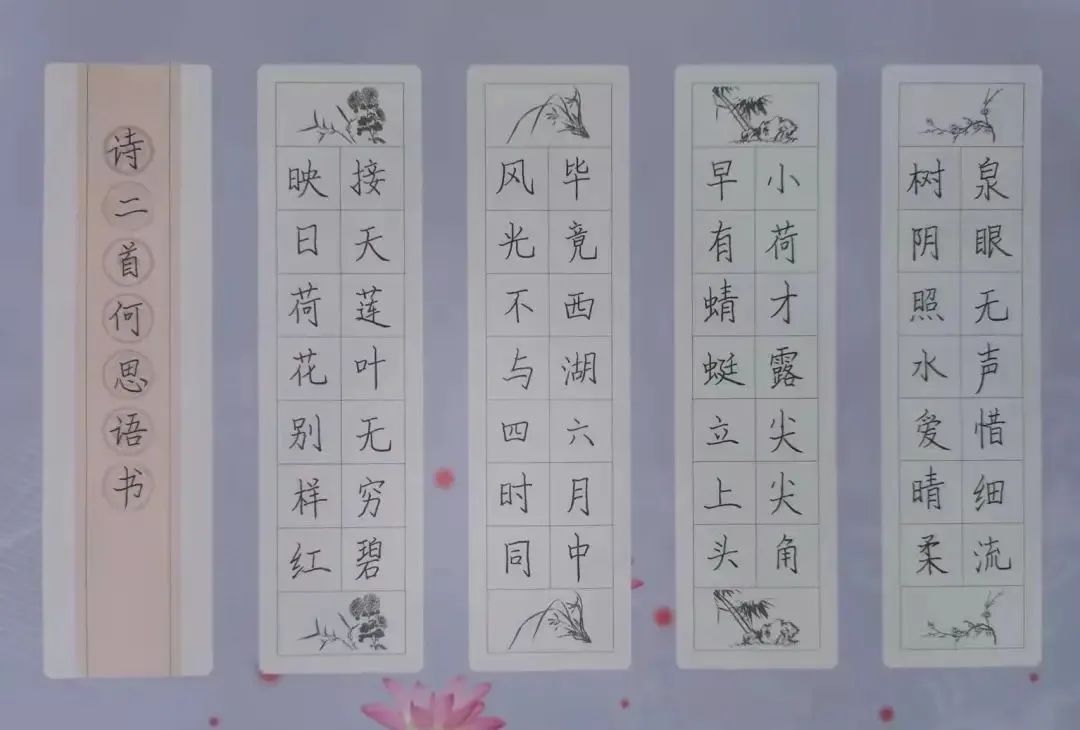 泉眼无声惜细流
树阴照水爱晴柔
小荷才露尖尖角
早有蜻蜓立上头
毕竟西湖六月中
风光不与四时同
接天莲叶无穷碧
映日荷花别样红
诗二首何思语书